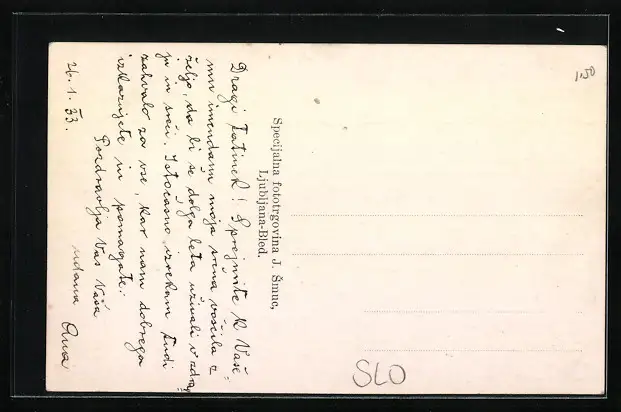 Dragi Tatinek! Sprejmite k Vaše-
mu imendanu moja srčna voščila z
željo, da bi še dolga leta uživali v zdrav
ju in sreči. Istočasno izrekam tudi
zahvalo za vse, kar nam dobrega
izkazujete in pomagate.
Pozdravlja Vas Vaša
udana Ana
26.1.33.
Specijalna fototrgovina J. Šmuc,
Ljubljana-Bled.
150
SLO